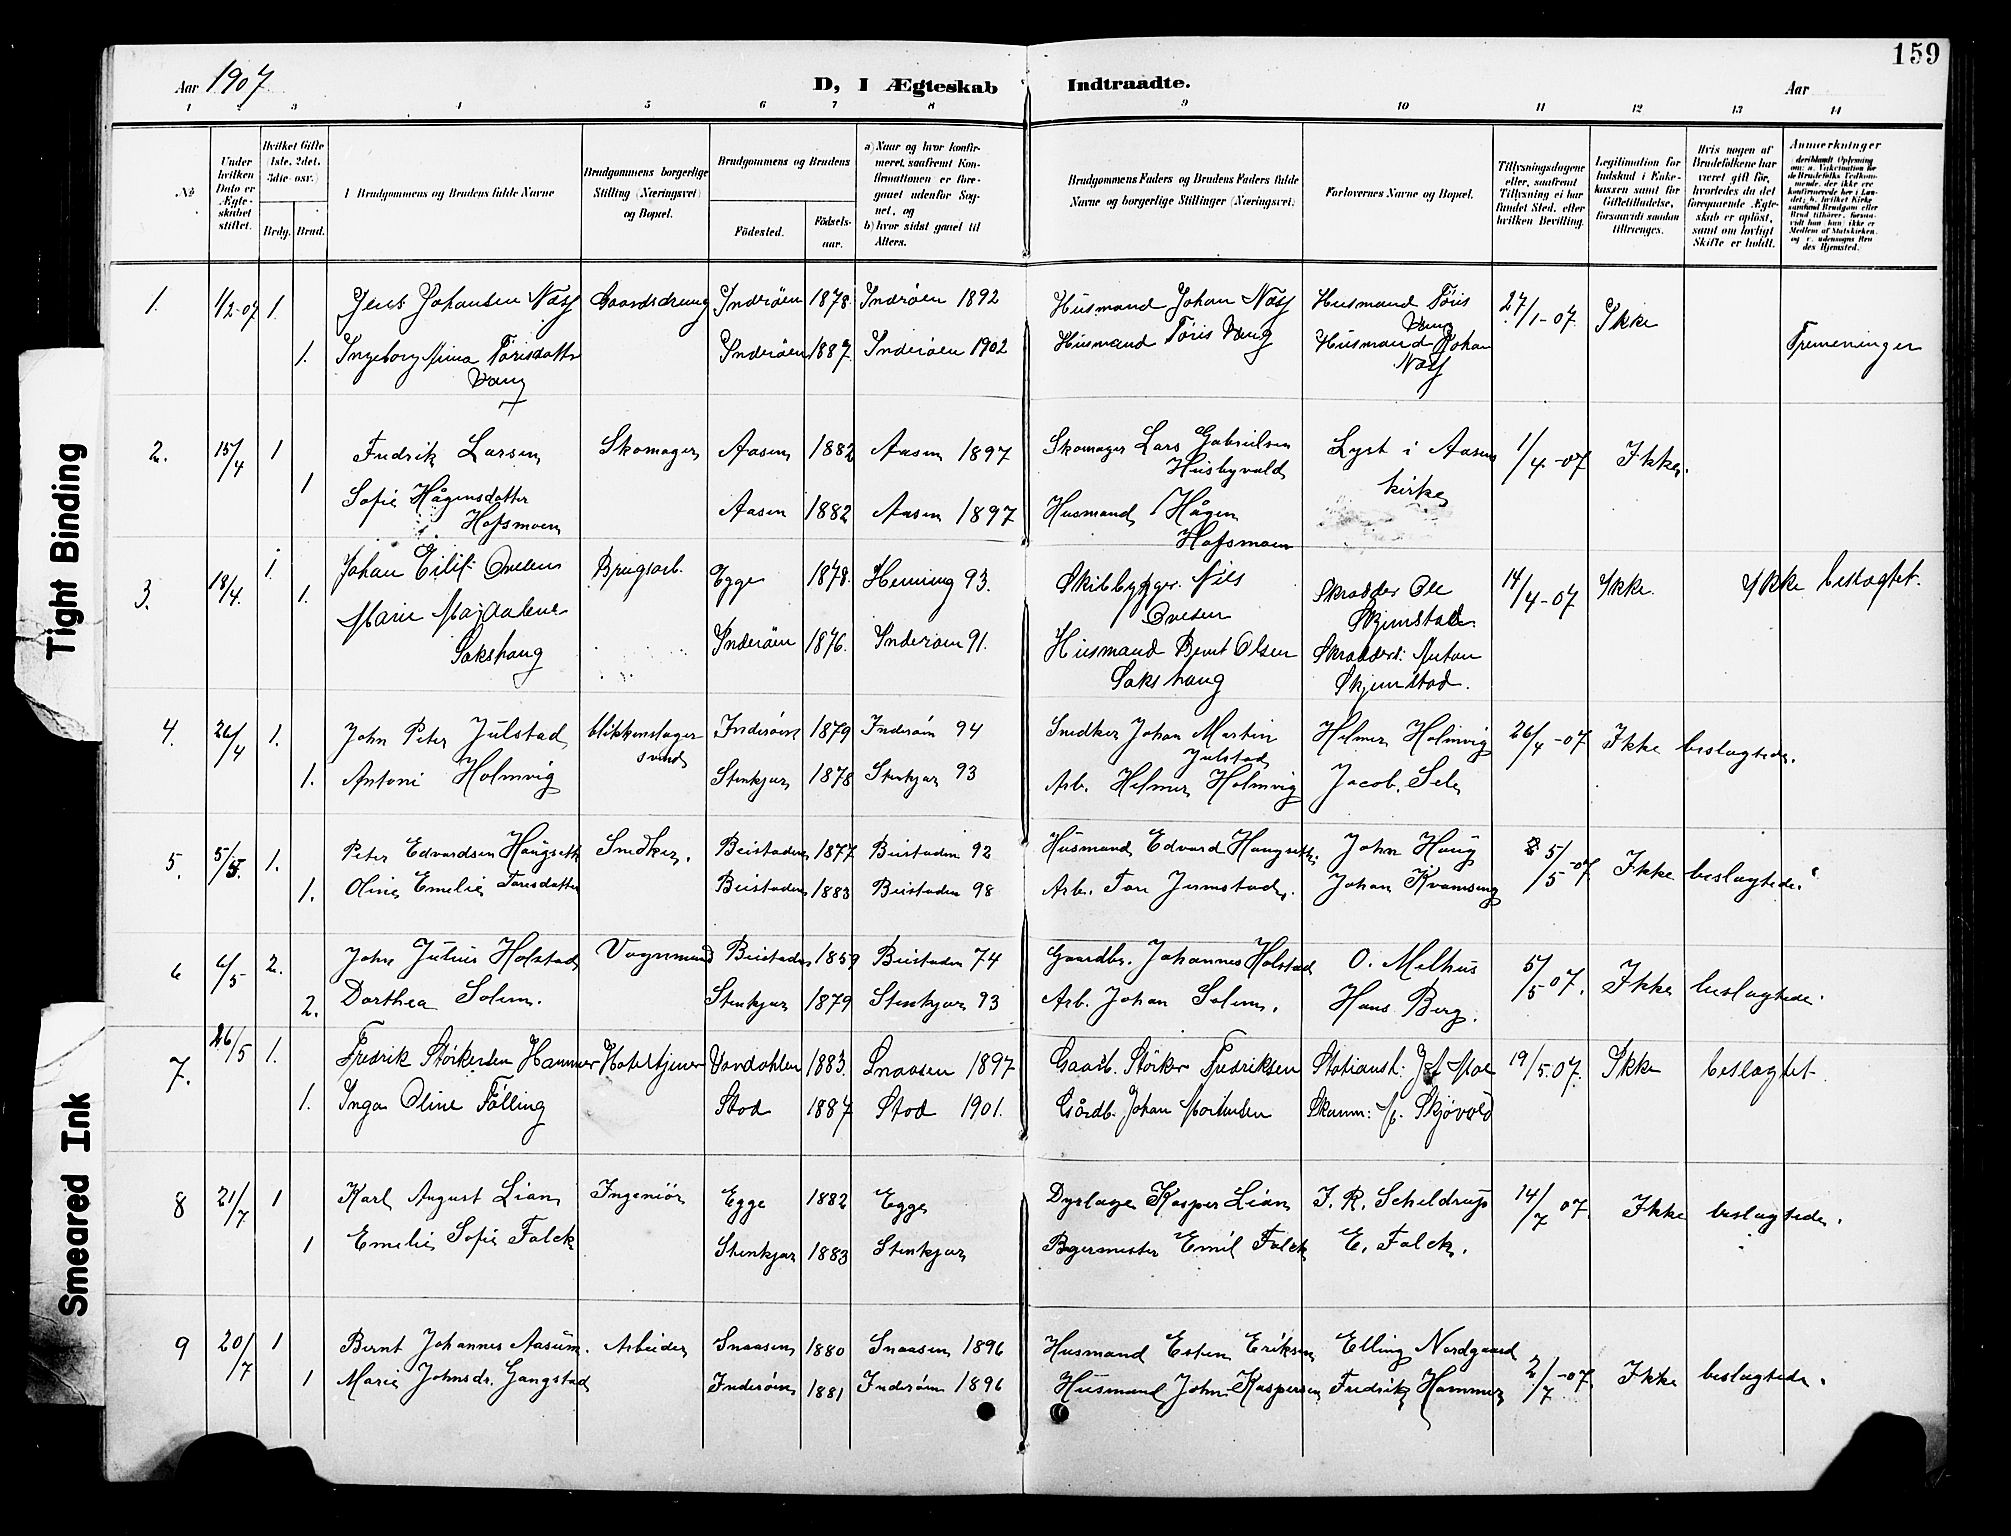 159
Aar 1907
D, I Ægteskab Indtraadte.
Aar
1 2 3 4 5 6 7 8 9 10 11 12 13 14
No.
Under hvilken Dato er Ægteskabet stiftet.
Hvilket Gifte (1ste, 2det, 3die osv.)
Brdg. Brud.
Brudgommens og Brudens fulde Navne
Brudgommens borgerlige Stilling (Næringsvei) og Bopæl.
Brudgommens og Brudens
Födested. Födsels-aar.
a) Naar og hvor konfirmeret, saafremt Konfirmationen er foregaaet udenfor Sognet, og
b) hvor sidst gaaet til Alters.
Brudgommens Faders og Brudens Faders fulde Navne og borgerlige Stillinger (Næringsvei)
Forlovernes Navne og Bopæl.
Tillysningsdagene eller, saafremt Tillysning ei har fundet Sted, efter hvilken Bevilling.
Legitimation for Indskud i Enkekassen samt for Giftetilladelse, forsaavidt saadan tiltrænges.
Hvis nogen af Brudefolkene har været gift før, hvorledes da det foregaaende Ægteskab er opløst, samt om lovligt Skifte er holdt.
Anmærkninger
1. 1/2-07 1. Jens Johansen Næss Gaardsdreng Inderöen 1878. Inderöen 1892 Husmand Johan Næss Husmand Töris Vang 27/1-07. Ikke
1. Ingeborg Anna Törisdatter Vang Inderöen 1887. Inderöen 1902 Husmand Töris Vang Husmand Johan Næss Tremeninger
2. 15/4 1 Fredrik Larsen Skomager Aasen 1882 Aasen 1897 Skomager Lars Gabrielsen Husbyvald Lyst i Aasen kirke 1/4-07 Ikke.
1 Sofie Hågensdatter Hofsmoen Aasen 1882 Aasen 1897 Husmand Hågen Hofsmoen
3. 18/4. 1. Johan Eilif Ovesen Brugsarb. Egge 1878. Henning 93. Skibbygger Nils Ovesen Skrædder Ole Skjemstad. 14/4-07 Ikke. Ikke beslægtet.
1. Marie Magdalene Sakshaug Inderöen 1876. Inderöen 91. Husmand Bernt Olsen Sakshaug Skrædder: Anton Skjemstad.
4. 26/4 1. John Peter Julstad blikkenslager svend Inderöen 1879 Inderöen 94 Snedker Johan Martin Julstad Helmer Holmvig 26/4-07 Ikke beslægtede.
1. Antoni Holmvig Stenkjær 1878 Stenkjær 93 Arb. Helmer Holmvig Jacob Sele
5. 5/5. 1. Peter Edvardsen Haugseth Snedker. Beistaden 1877 Beistaden 92 Husmand Edvard Haugseth. John Haug 5/5-07. Ikke beslægtede.
1. Oline Emelie Toresdatter Beistaden 1883 Beistaden 98 Arb. Tore Jermstad. Johan Kvamseng
6 6/5 2. John Julius Holstad Vognmand Beistaden 1859 Beistaden 74 Gaardbr. Johannes Holstad O. Melhus 5/5 07. Ikke beslægtede.
2. Dorthea Solem. Stenkjær 1879 Stenkjær 93 Arb. Johan Solem. Hans Berg.
7. 26/5 1. Fredrik Störkersen Hammer Hoteltjener Vandahlen 1883. Snaasen 1897 Gaarb. Störker Fredriksen 19/5.07. Ikke beslægtet
1. Inga Oline Fölling Stod 1887 Stod 1901. Gårdb. Johan Mortensen Skjövold
8 21/7 1 Karl August Lian Ingeniör Egge 1882 Egge Dyrlæge Kasper Lian I. R. Scheldrup 14/7 07. Ikke beslægtede.
1 Emelie Sofie Falck Stenkjær 1883 Stenkjær Bogermester Emil Falck E. Falck.
9 20/7 1 Bernt Johannes Aasum. Arbeider Snaasen 1880 Snaasen 1896 Husmand Esten Eriksen Elling Nordgaard 2/7-07. Ikke beslægtede.
1 Marie Johnsdr. Gangstad Inderöen 1881 Inderöen 1896 Husmand John Kaspersen Fredrik Hammer
Tight Binding
Smeared Ink